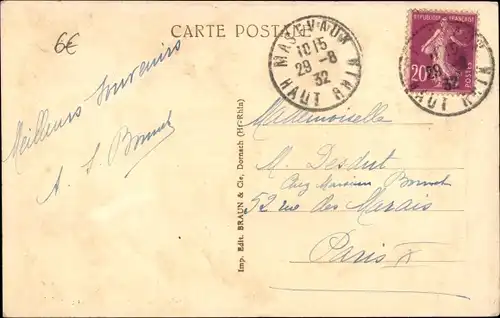 CARTE POSTALE
6€
Meilleurs Souvenirs
MASEVAUX
10 15
29 -8
32
HAUT RHIN
REPUBLIQUE FRANÇAISE
20
POSTES
32
HAUT RHIN
Imp. Edit. BRAUN & Cie, Dornach (Ht-Rhin)
Mademoiselle
M.
Chez
52 rue des Marais
Paris X